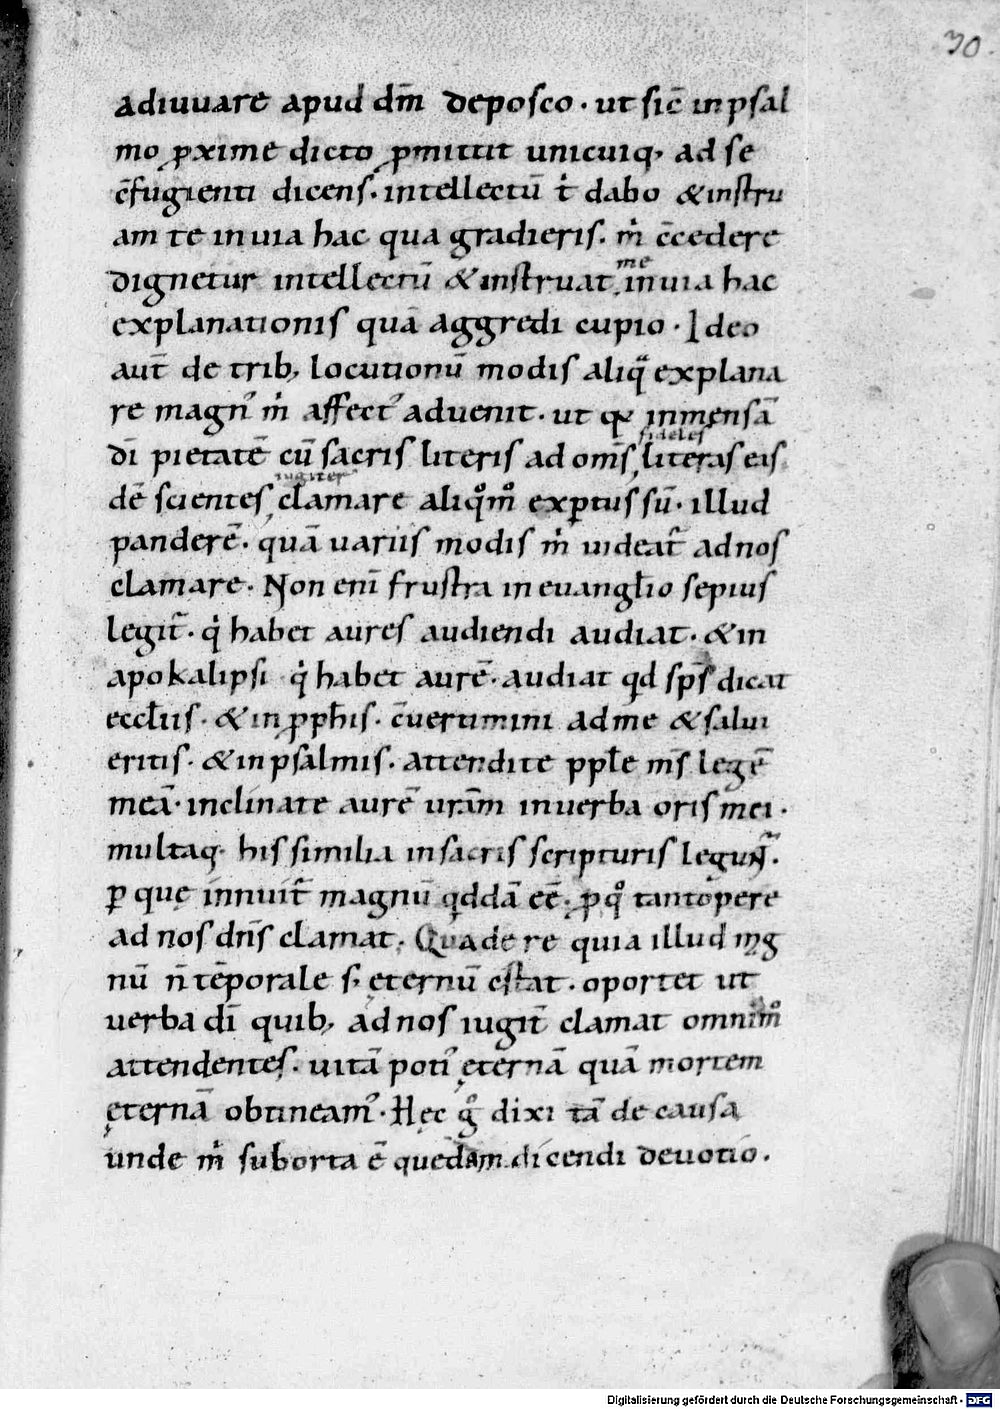 30.
adiuuare apud dm̅ deposco · ut sic̅ in psal
mo ꝓxime dicto ꝓmittit unicuiq, ad se
c̅fugienti dicens · intellectu̅ t̍ dabo & instru
am te in uia hac qua gradieris · m̍ c̅cedere
dignetur intellectu̅ & instruat me in uia hac
explanationis qua̅ aggredi cupio · Ideo
aut̅ de trib, locutionu̅ modis aliq̅ explana
re magn᾽ m̍ affect᾽ aduenit · ut q̅ inmensa̅
di̅ pietate̅ cu̅ sacris literis ad om̅s fideles literas eis
de̅ scientes iugiter clamare aliqͦmͦ exꝑtus su̅ · illud
pandere̅ · qua̅ uariis modis m̍ uideat᷑ ad nos
clamare · Non eni̅ frustra in euangl̅io sepius
legit᷑ · q̍ habet aures audiendi audiat · & in
apokalipsi q̍ habet aure̅ · audiat qd sp̅s dicat
eccl̅iis · & in ꝓph̅is · c̅uertimini ad me & salui
eritis · & in psalmis · attendite pp̅le m̅s lege̅
mea̅ · inclinate aure̅ ura̅m in uerba oris mei ·
multaq · his similia in sacris scripturis legun᷑t ·
ꝑ quę innuit᷑ magnu̅ qdda̅ ee̅ · ꝓ qͦ tantopere
ad nos dn̅s clamat · Qua de re quia illud mag
nu̅ n̅ te̅porale s; ęternu̅ estat · oportet ut
uerba di̅ quib, ad nos iugit̅ clamat omnimͦ
attendentes · uita̅ poti᾽ ęterna̅ qua̅ mortem
ęterna̅ obtineam᾽ · Hęc gͦ dixi ta̅ de causa
unde m̍ suborta e̅ quedam dicendi deuotio ·
Digitalisierung gefördert durch die Deutsche Forschungsgemeinschaft - DFG